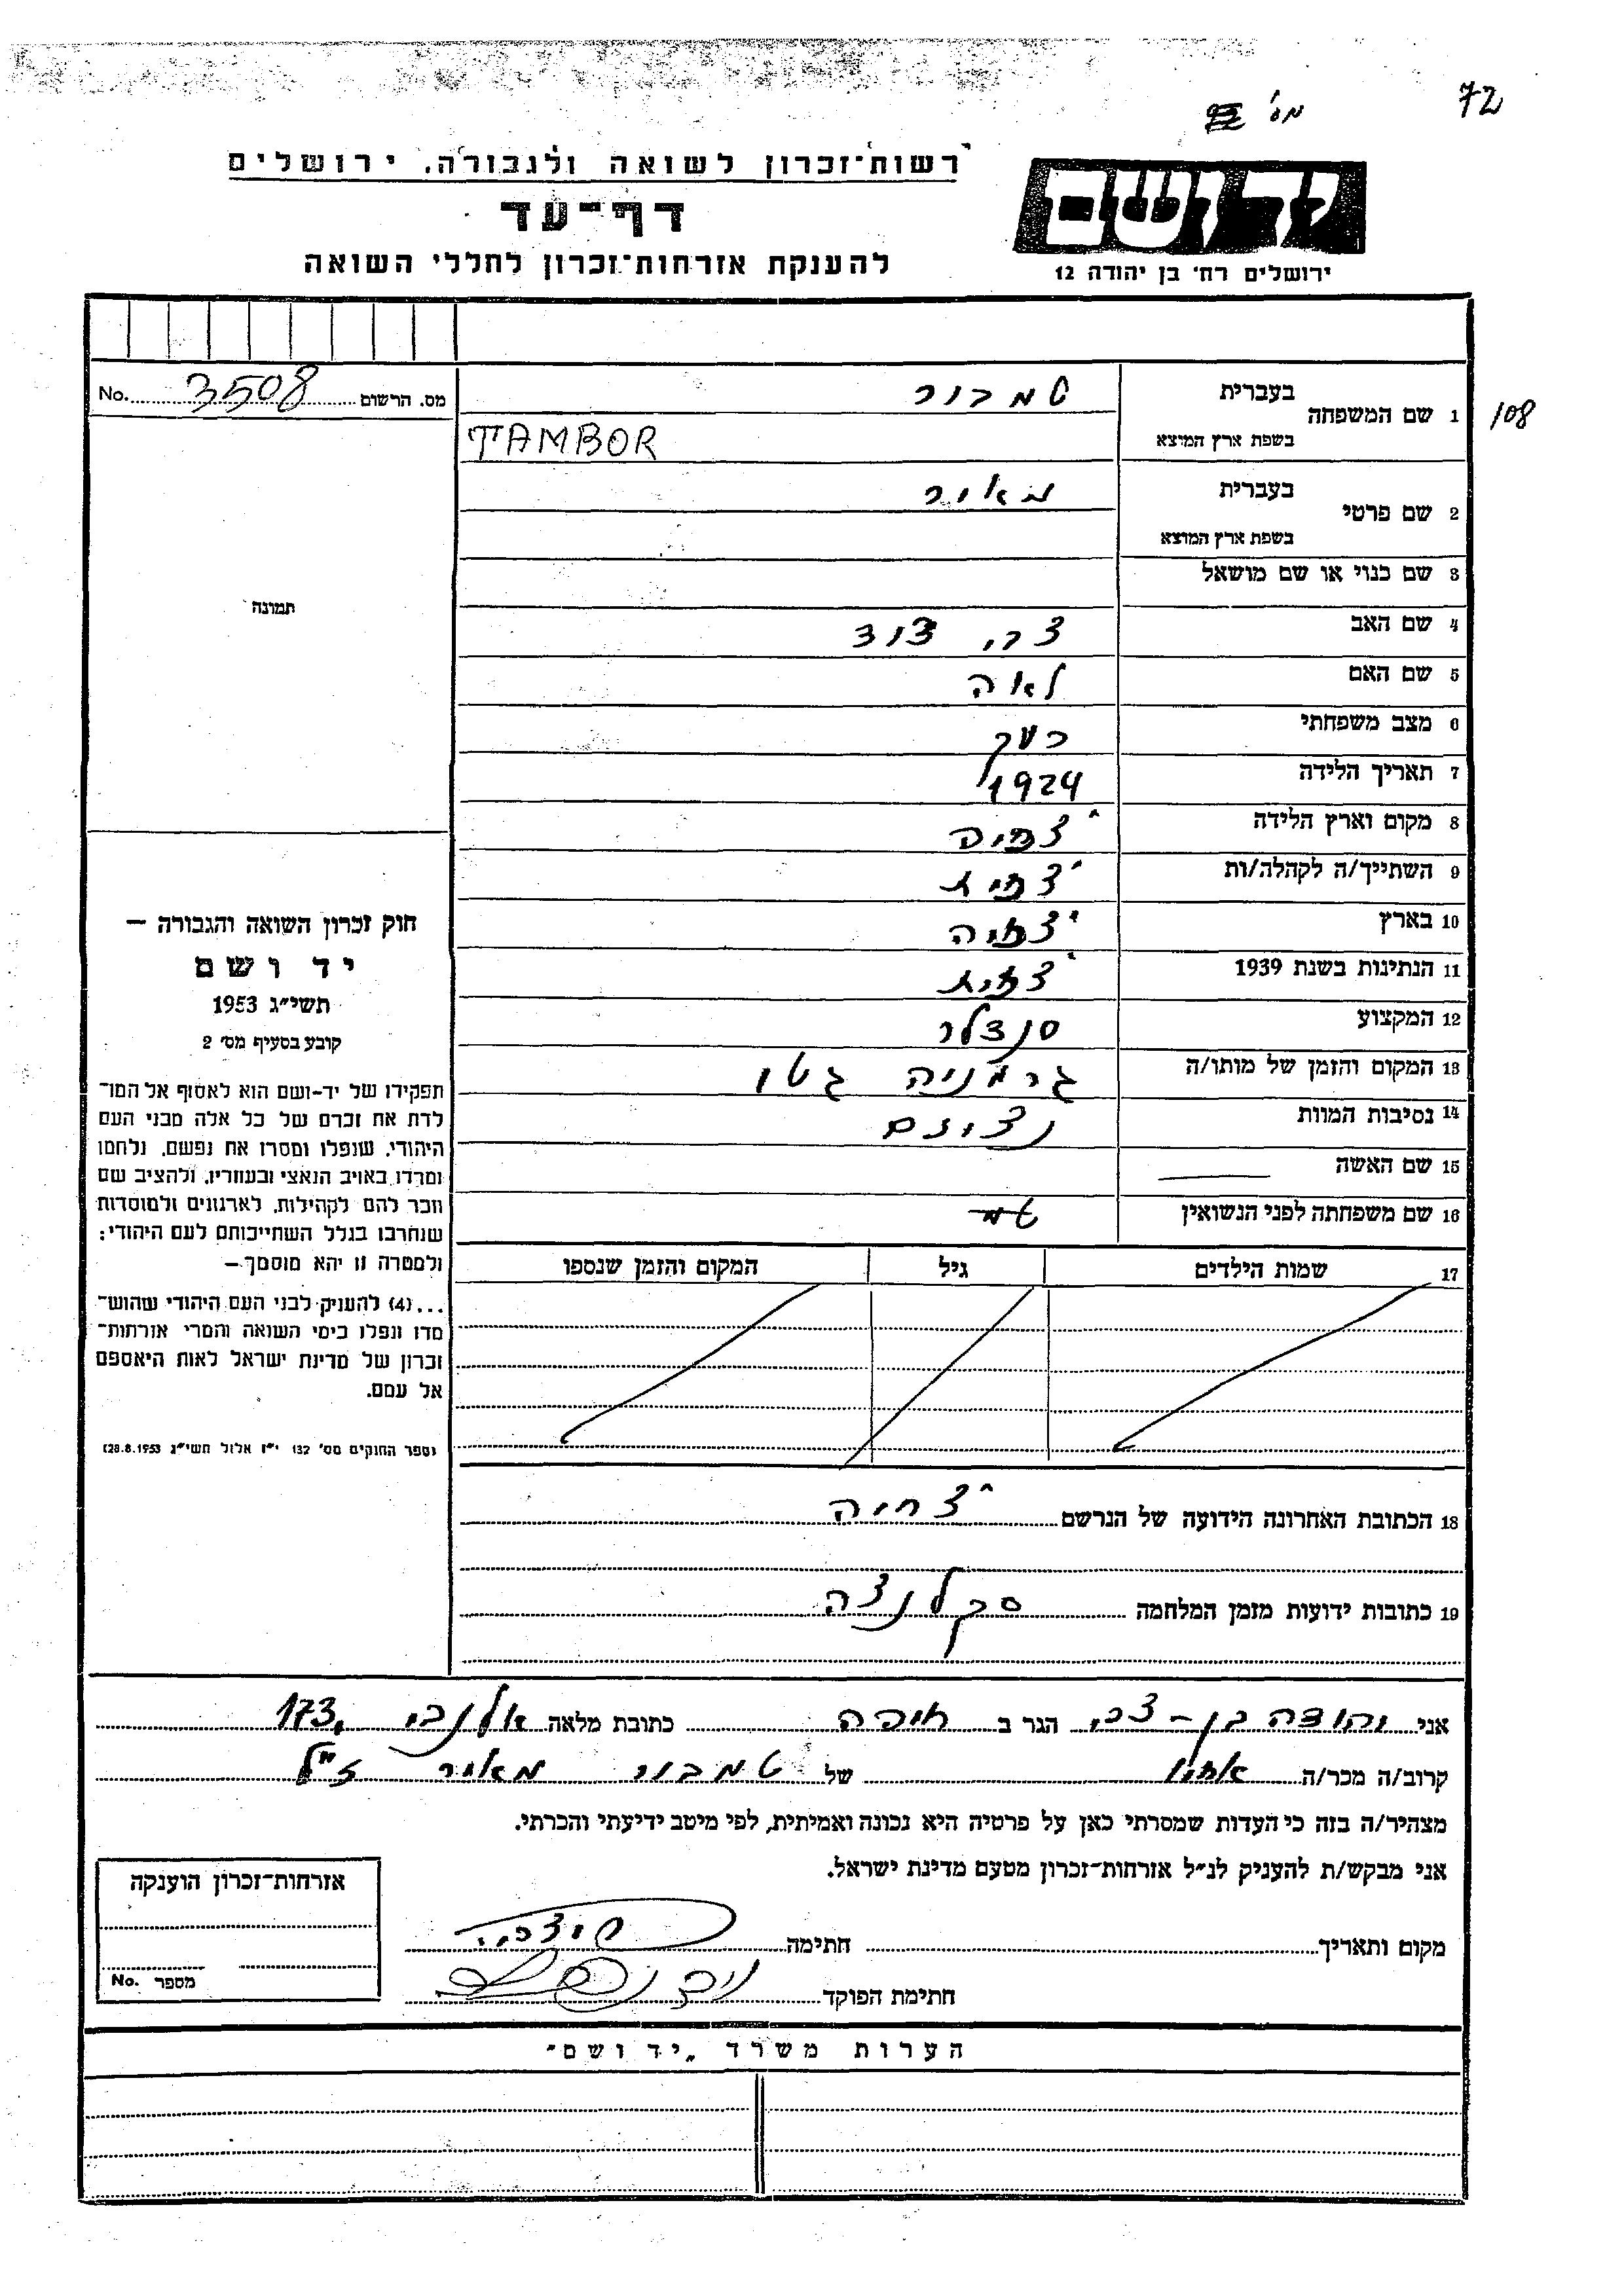 72
מס'
רשות-זכרון לשואה ולגבורה, ירושלים
דף-עד
להענקת אזרחות-זכרון לחללי השואה
יד ושם
ירושלים רח' בן יהודה 12
108
מס. הרשום 3508 No.
1 שם המשפחה
בעברית טמבור
בשפת ארץ המוצא TAMBOR
2 שם פרטי
בעברית מאיר
בשפת ארץ המוצא
3 שם כנוי או שם מושאל
4 שם האב צבי דוד
5 שם האם לאה
6 מצב משפחתי
7 תאריך הלידה 1924
8 מקום וארץ הלידה צ'כיה
9 השתייך/ה לקהלה/ות צ'כית
10 בארץ צ'כיה
11 הנתינות בשנת 1939 צ'כית
12 המקצוע סנדלר
13 המקום והזמן של מותו/ה גרמניה גטו
14 נסיבות המוות
15 שם האשה
16 שם משפחתה לפני הנשואין
17 שמות הילדים גיל המקום והזמן שנספו
18 הכתובת האחרונה הידועה של הנרשם צ'כיה
19 כתובות ידועות מזמן המלחמה
תמונה
חוק זכרון השואה והגבורה –
יד ושם
תשי"ג 1953
קובע בסעיף מס' 2
תפקידו של יד-ושם הוא לאסוף אל המו־
לדת את זכרם של כל אלה מבני העם
היהודי, שנפלו ומסרו את נפשם, נלחמו
ומרדו באויב הנאצי ובעוזריו, ולהציב שם
וזכר להם לקהילות, לארגונים ולמוסדות
שנחרבו בגלל השתייכותם לעם היהודי;
ולמטרה זו יהא מוסמך –
...(4) להעניק לבני העם היהודי שהוש־
מדו ונפלו בימי השואה והמרי אזרחות־
זכרון של מדינת ישראל לאות היאספם
אל עמם.
(ספר החוקים מס' 132 י"ז אלול תשי"ג 28.8.1953)
אני יהודה בן-צבי הגר ב חיפה כתובת מלאה אלנבי 173
קרוב/ה מכר/ה אחיו של טמבור מאיר ז"ל
מצהיר/ה בזה כי העדות שמסרתי כאן על פרטיה היא נכונה ואמיתית, לפי מיטב ידיעתי והכרתי.
אני מבקש/ת להעניק לנ"ל אזרחות-זכרון מטעם מדינת ישראל.
מקום ותאריך חתימה
חתימת הפוקד
אזרחות-זכרון הוענקה
מספר No.
הערות משרד "יד ושם"